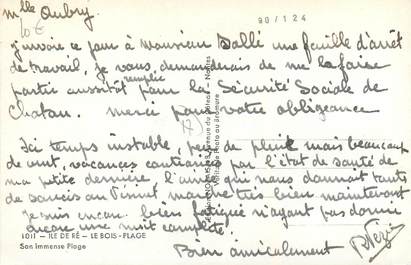 Mlle Aubry.
10 €
80/124
J'envoie ce jour à Monsieur Dallé une feuille d'arrêt
de travail, je vous demanderais de me la faire
remplie
partir aussitôt pour la Sécurité Sociale de
Chatou. Merci pour votre obligeance
Ici temps instable, peu de pluie mais beaucoup
de vent, vacances contrariées par l'état de santé de
ma petite dernière l'aînée qui nous donnait tant
de soucis au Vésinet marche très bien maintenant
Je suis encore bien fatiguée n'ayant pas dormi
encore une nuit complète.
1011 — ILE DE RÉ — LE BOIS-PLAGE
Son Immense Plage
Bien amicalement
Véritable Photo au Bromure